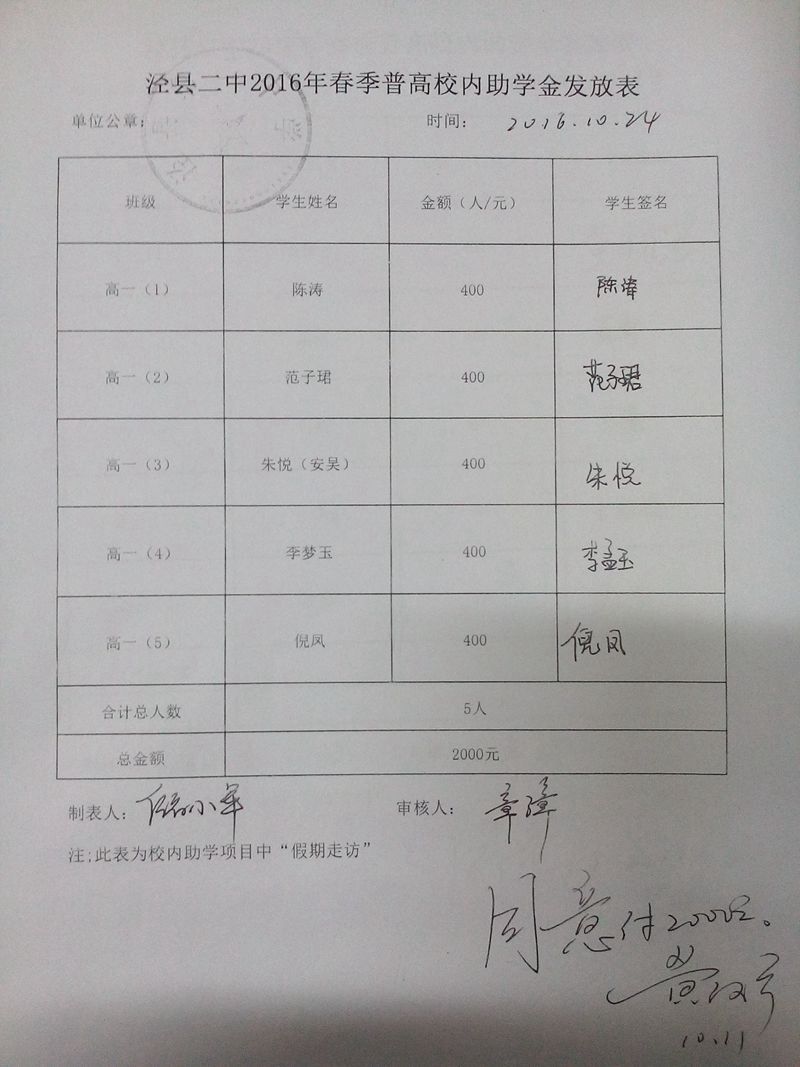 泾县二中2016年春季普高校内助学金发放表
单位公章： 时间： 2016.10.24
班级 学生姓名 金额（人/元） 学生签名
高一（1） 陈涛 400 陈涛
高一（2） 范子珺 400 范子珺
高一（3） 朱悦（安吴） 400 朱悦
高一（4） 李梦玉 400 李孟玉
高一（5） 倪凤 400 倪凤
合计总人数 5人
总金额 2000元
制表人： 审核人：
注;此表为校内助学项目中“假期走访”
同意付2000元。
10.11